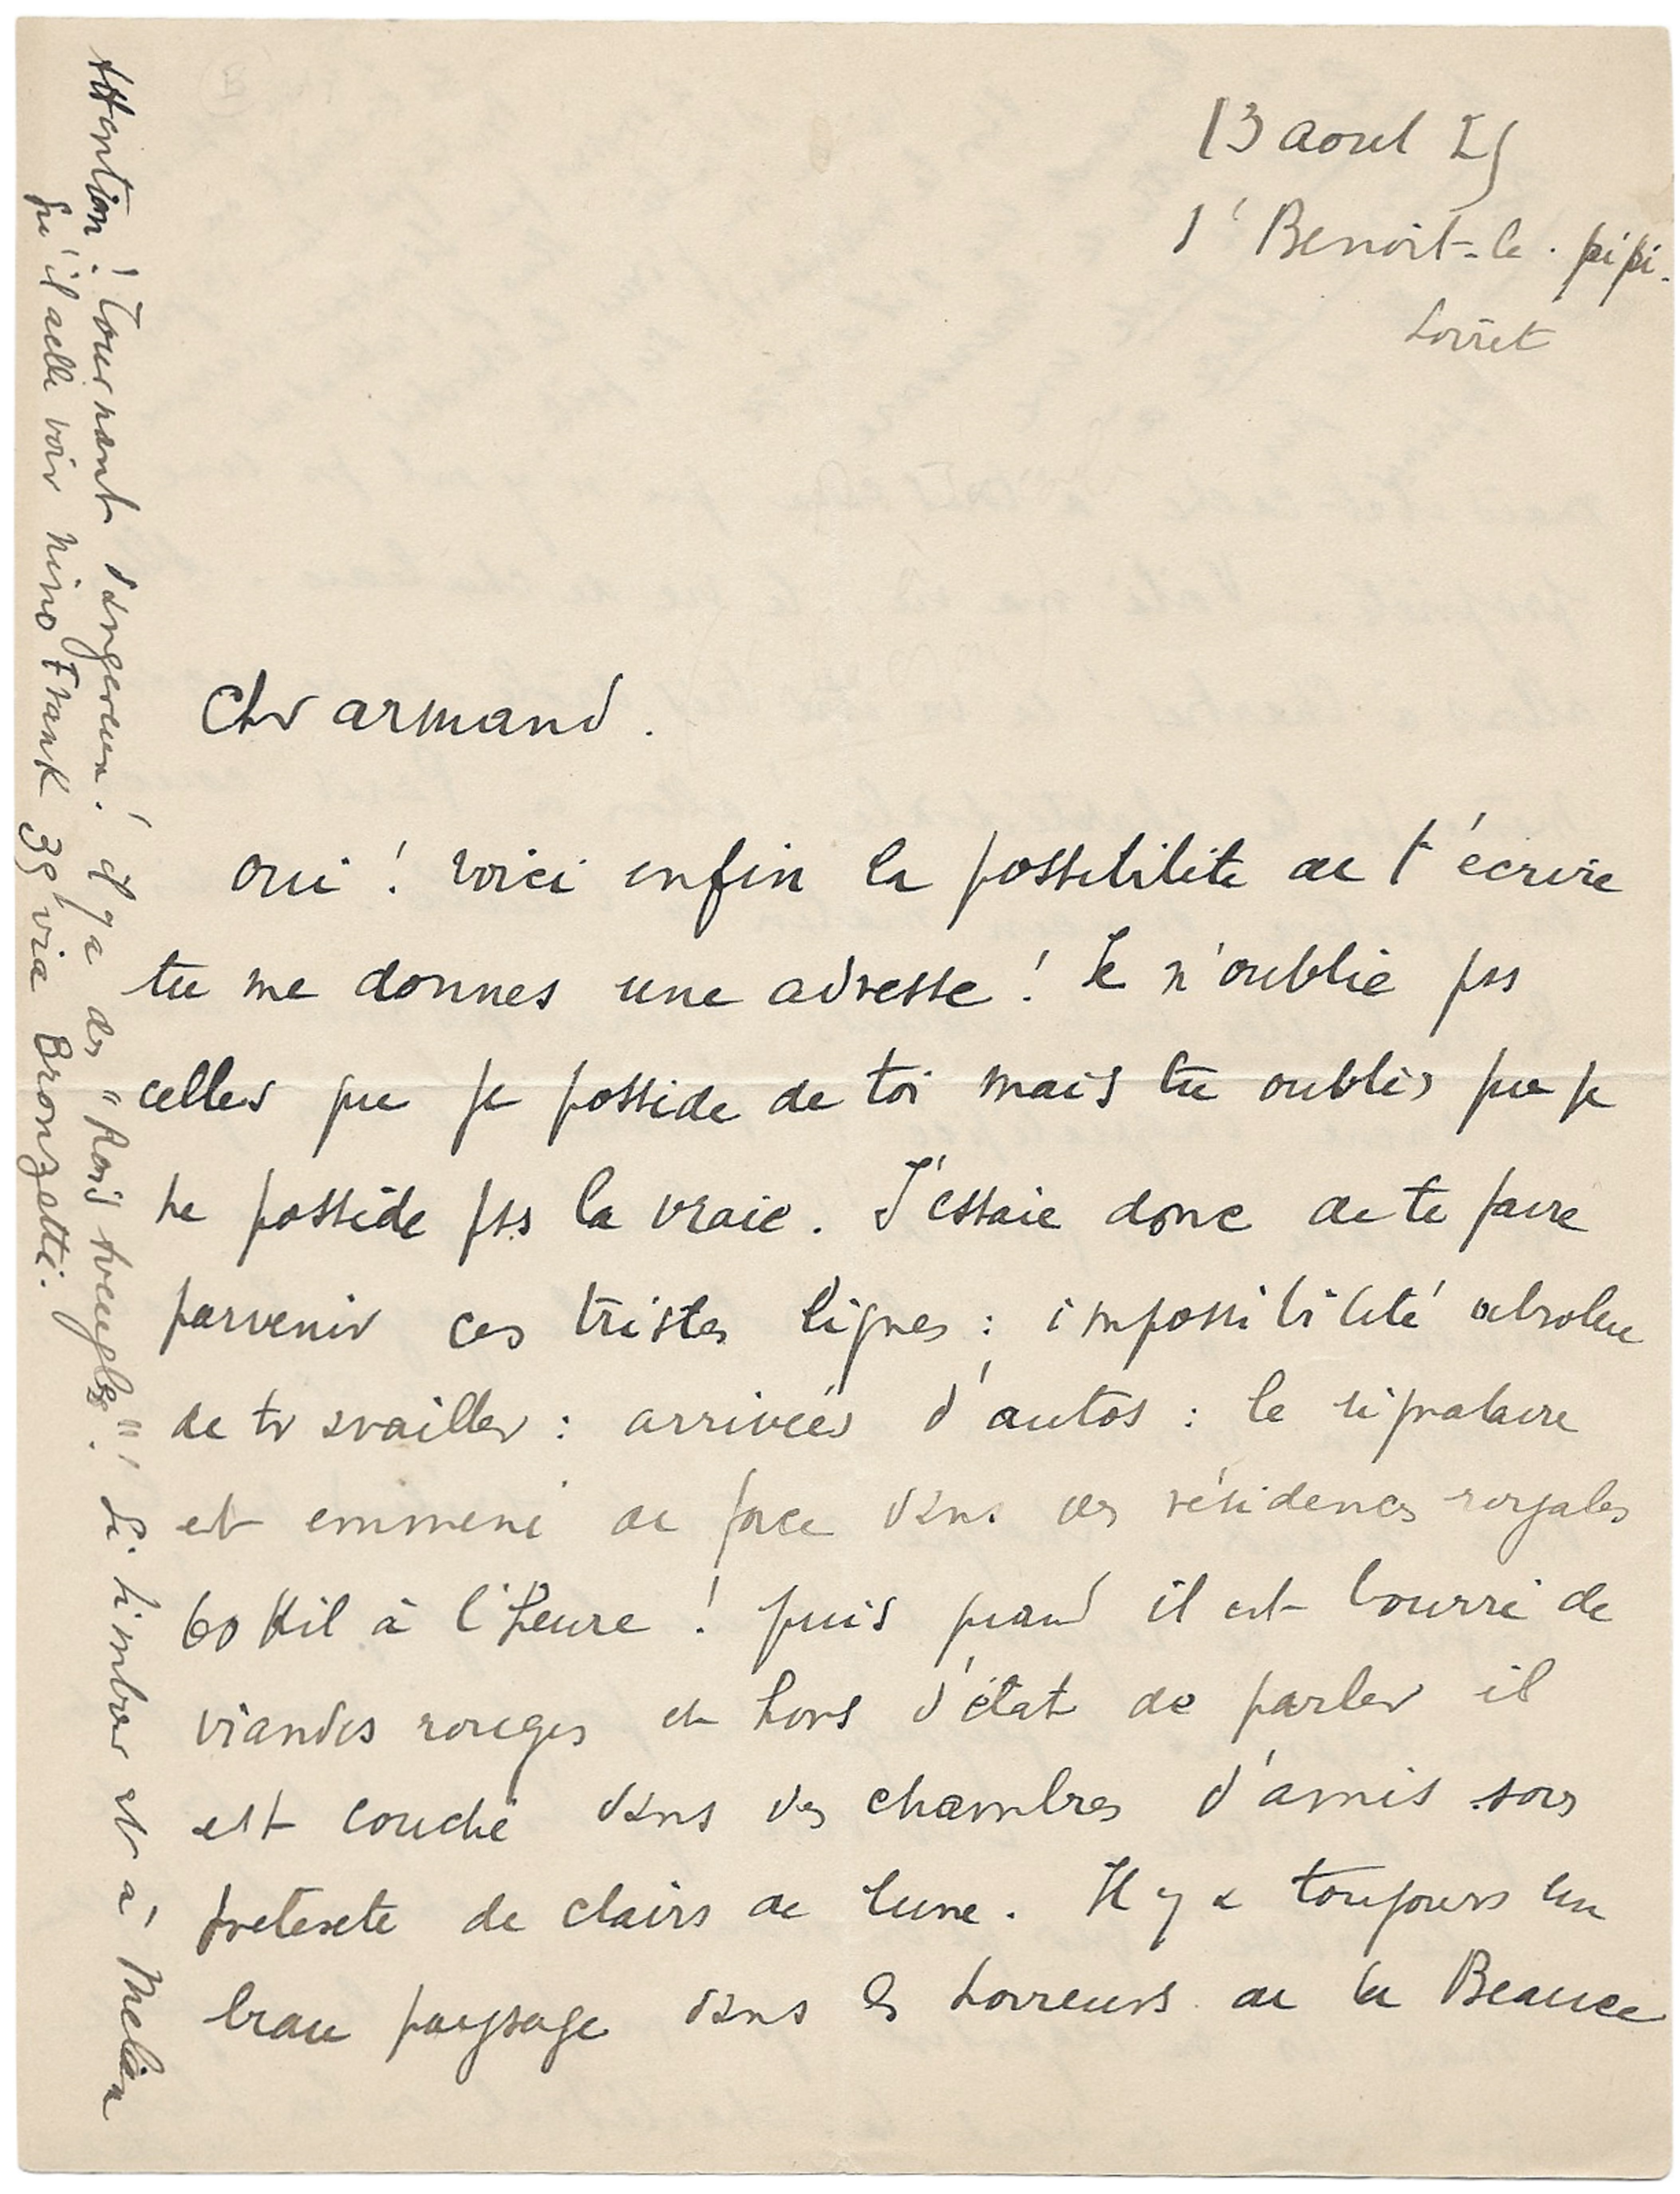 13 aout 25
St Benoit-le-pipi-
Loiret
Cher armand.
oui ! voici enfin la possibilite de t'écrire
tu me donnes une adresse ! Je n'oublie pas
celles que je possède de toi mais tu oublies que je
ne possède pas la vraie. J'essaie donc de te faire
parvenir ces tristes lignes : impossibilité absolue
de travailler : arrivées d'autos : le signataire
est emmené de force dans des résidences royales
60 Kil à l'heure ! puis quand il est bourré de
viandes rouges et hors d'état de parler il
est couché dans des chambres d'amis sous
pretexte de clairs de lune. Il y a toujours un
beau paysage dans les horreurs de la Beauce
Attention ! Tournant dangereux ! il y a des "Rois aveugles" ! Si timbrer est à
qu'il aille voir Nino Frank 39 via Bronzetti.